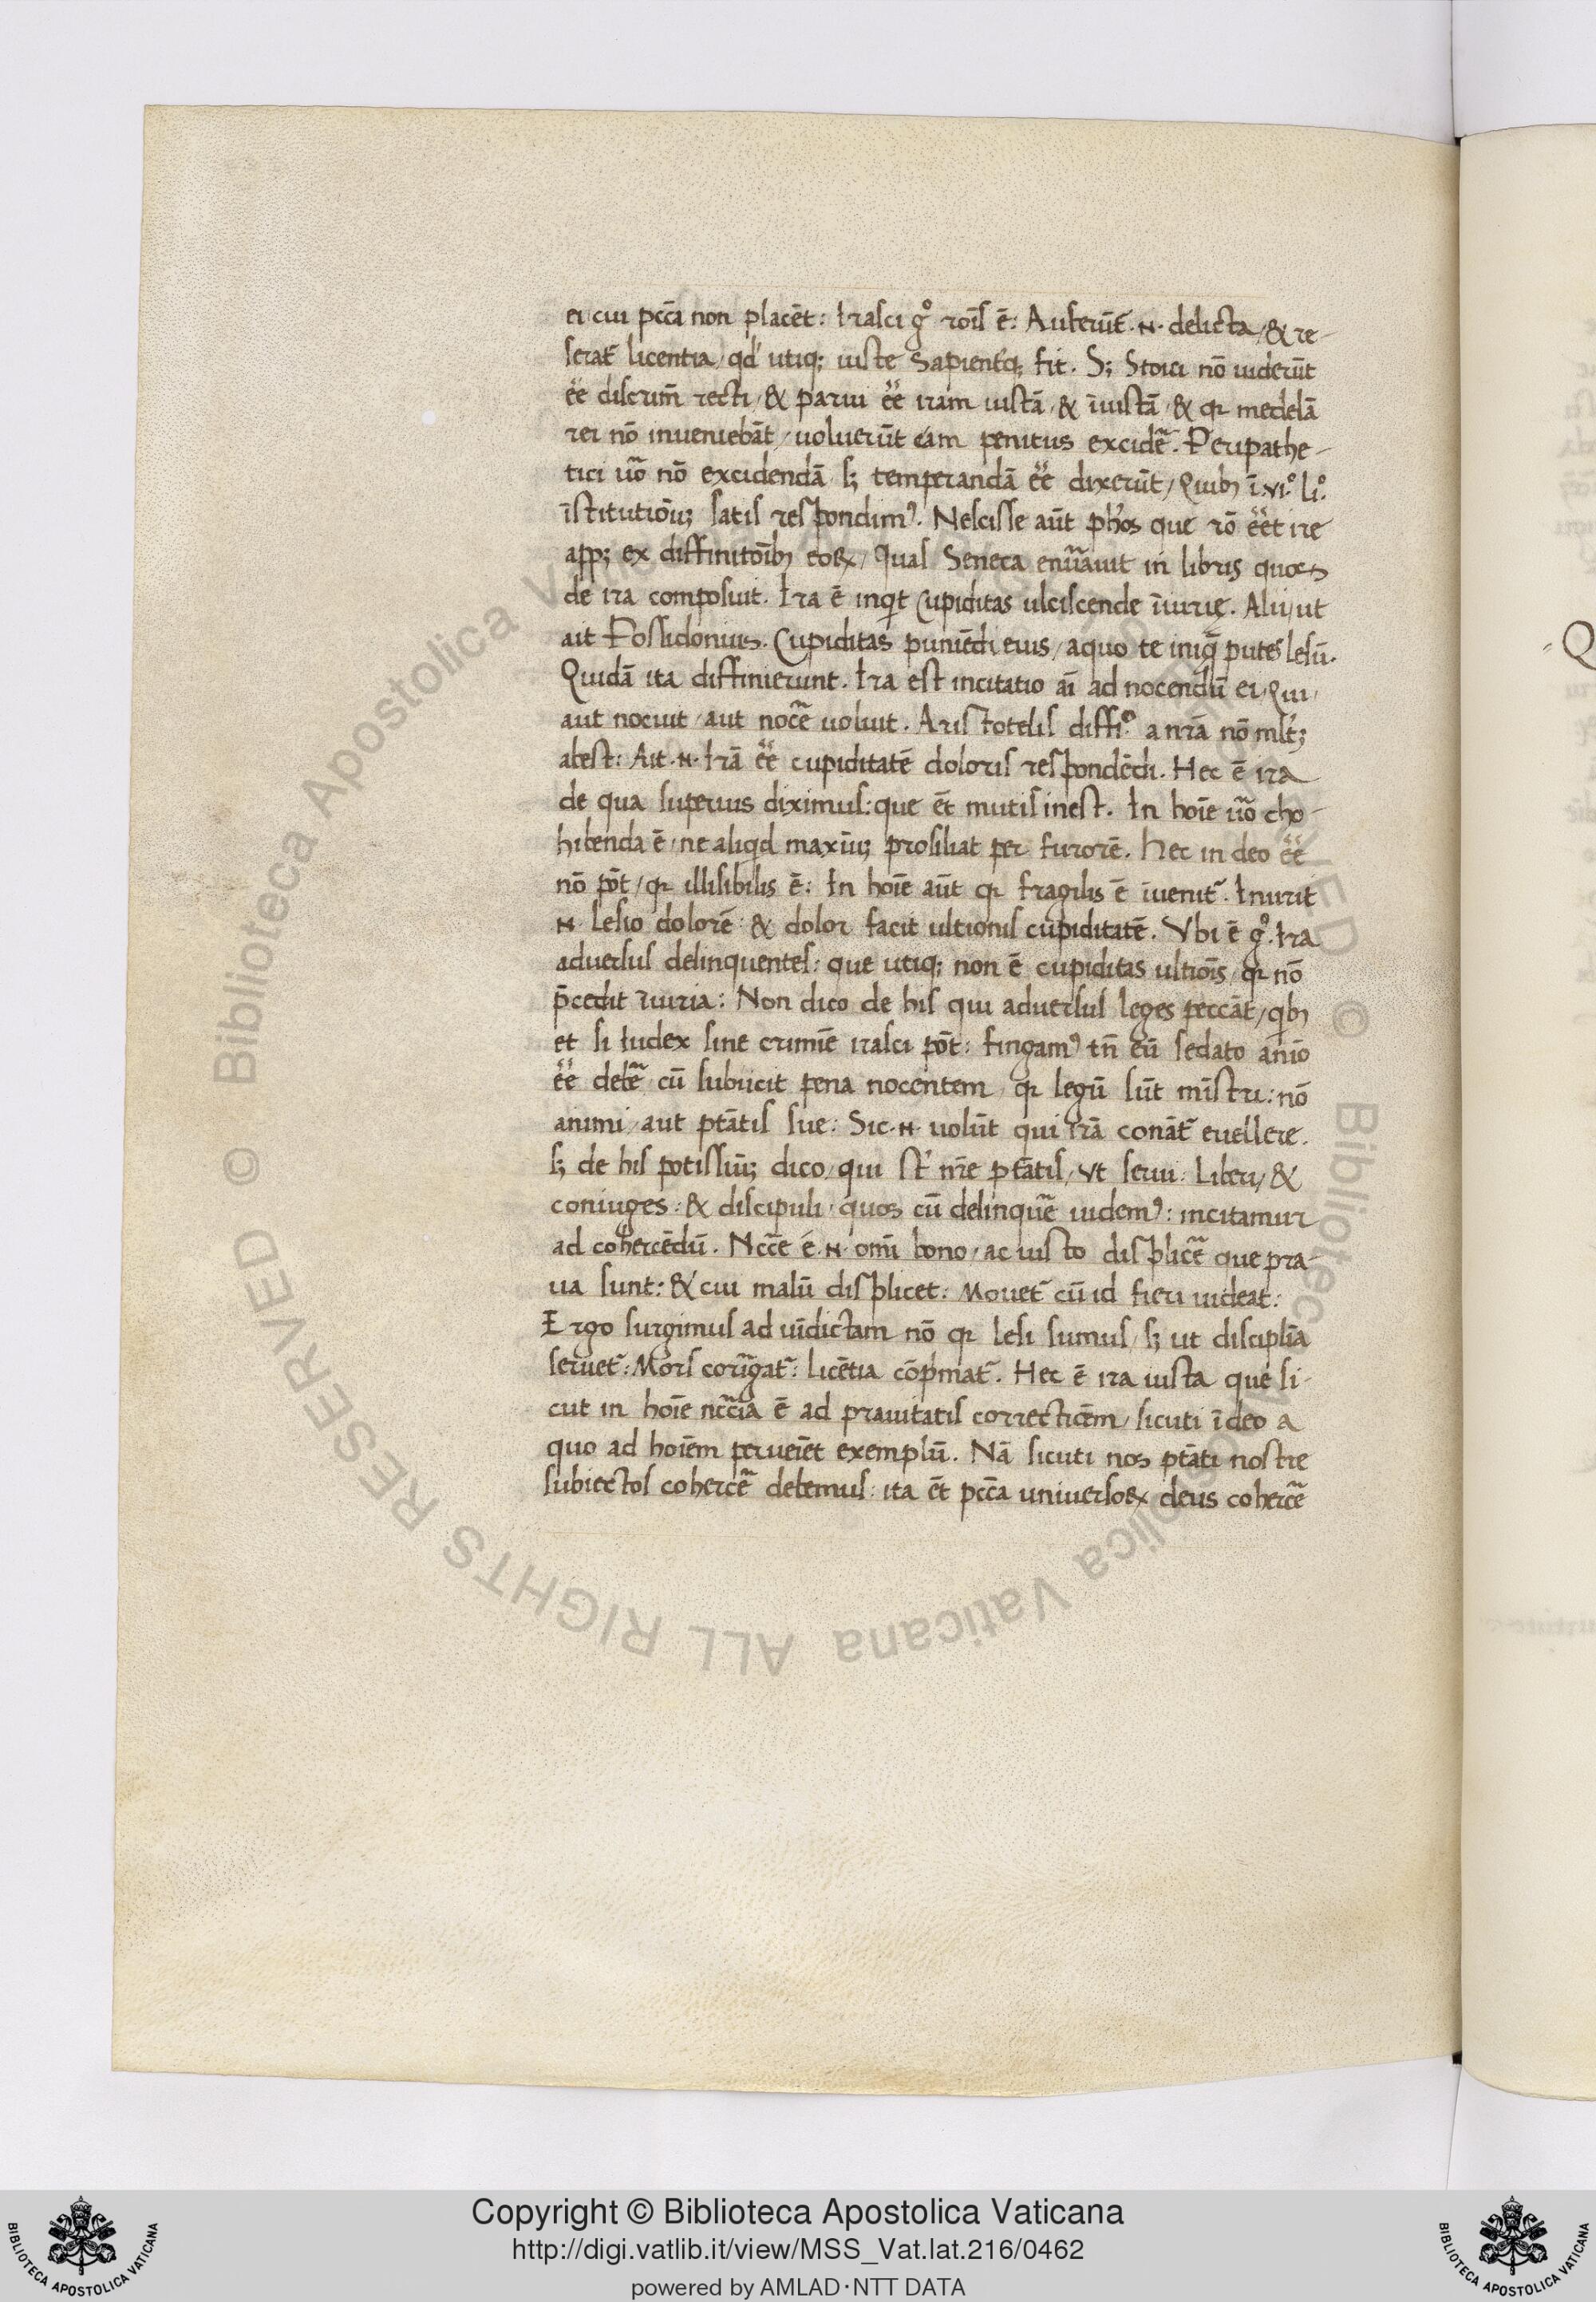 ei cui pcc̄a non placēt: Irasci gͦ rōis ē: Auferūt̄ .N. delicta, & re-
ferat̄ licentia, qd' utiq; iuste sapientq; fit. S; Stoici nō uiderūt
ēē discrim̄ recti, & parui ēē iram iustā, & īiustā, & qr medelā
rei nō inueniebāt, uoluerūt eam penitus excidē. Peripathe-
tici u̅o nō excidendā s; temperandā ēē dixerūt, Quib; ī .vi.ͦ li.ͦ
īstitutiōu; satis respondimꝰ. Nescisse aūt ph'os que rō ēēt ire
app; ex diffinitōib; eoꝝ, Quas Seneca enu̅auit in libris quos
de ira composuit. Ira ē inqt cupiditas ulciscende īiurię. Alii, ut
ait Possidonius. Cupiditas puniēdi eius, a quo te iniq̄ putes lesū.
Quidā ita diffinierunt. Ira est incitatio aī ad nocendū ei, Qui,
aut nocuit, aut nocē uoluit. Aristotelis diffi.ͦ a nrā nō mlt';
abest: Ait .N. Irā ēē cupiditatē doloris respondēdi. Hec ē ira
de qua superius diximus: que ēt mutis inest. In hoīe u̅o cho-
hibenda ē, ne aliqd maxīu; prosiliat per furorē. Hec in deo ēē
nō pōt, qr illisibilis ē: In hoīe aūt qr fragilis ē īuenit̄. Inurit
.N. lesio dolorē & dolor facit ultionis cupiditatē. Vbi ē gͦ. Ira
aduersus delinquentes: que utiq; non ē cupiditas ultiōis, qr nō
p̄cedit īiuria: Non dico de his qui aduersus leges peccāt, qb;
et si Iudex sine crimīe irasci pōt: fingamꝰ tn̄ eū sedato anīo
ēē debē, cū subiicit pena nocentem, qr legū sūt mīstri: nō
animi, aut ptātis sue: Sic .N. uolūt qui irā conāt̄ euellere.
s; de his potissiu; dico, qui st' nr̄e ptātis, ut serui: Liberi, &
coniuges: & discipuli, quos cū delinquē uidemꝰ: incitamur
ad cohercēdū. Ncc̄e ē .N. omī bono, ac iusto displicē que pra-
ua sunt: & cui malū displicet: Mouet̄ cū id fieri uideat:
Ergo surgimus ad uīdictam nō qr lesi sumus, s; ut disciplīa
seruet̄: Mors corīgat̄: licētia cōpmat̄. Hec ē ira iusta que si-
cut in hoīe ncc̄ia ē ad prauitatis correcticēm, sicuti ī deo a
quo ad hoīem perueiēt exemplū. Nā sicuti nos ptāti nostre
subiectos cohercē debemus: ita ēt pcc̄a uniuersoꝝ deus cohercē
Copyright © Biblioteca Apostolica Vaticana
http://digi.vatlib.it/view/MSS_Vat.lat.216/0462
powered by AMLAD·NTT DATA
BIBLIOTECA APOSTOLICA VATICANA
BIBLIOTECA APOSTOLICA VATICANA
© Biblioteca Apostolica Vaticana ALL RIGHTS RESERVED